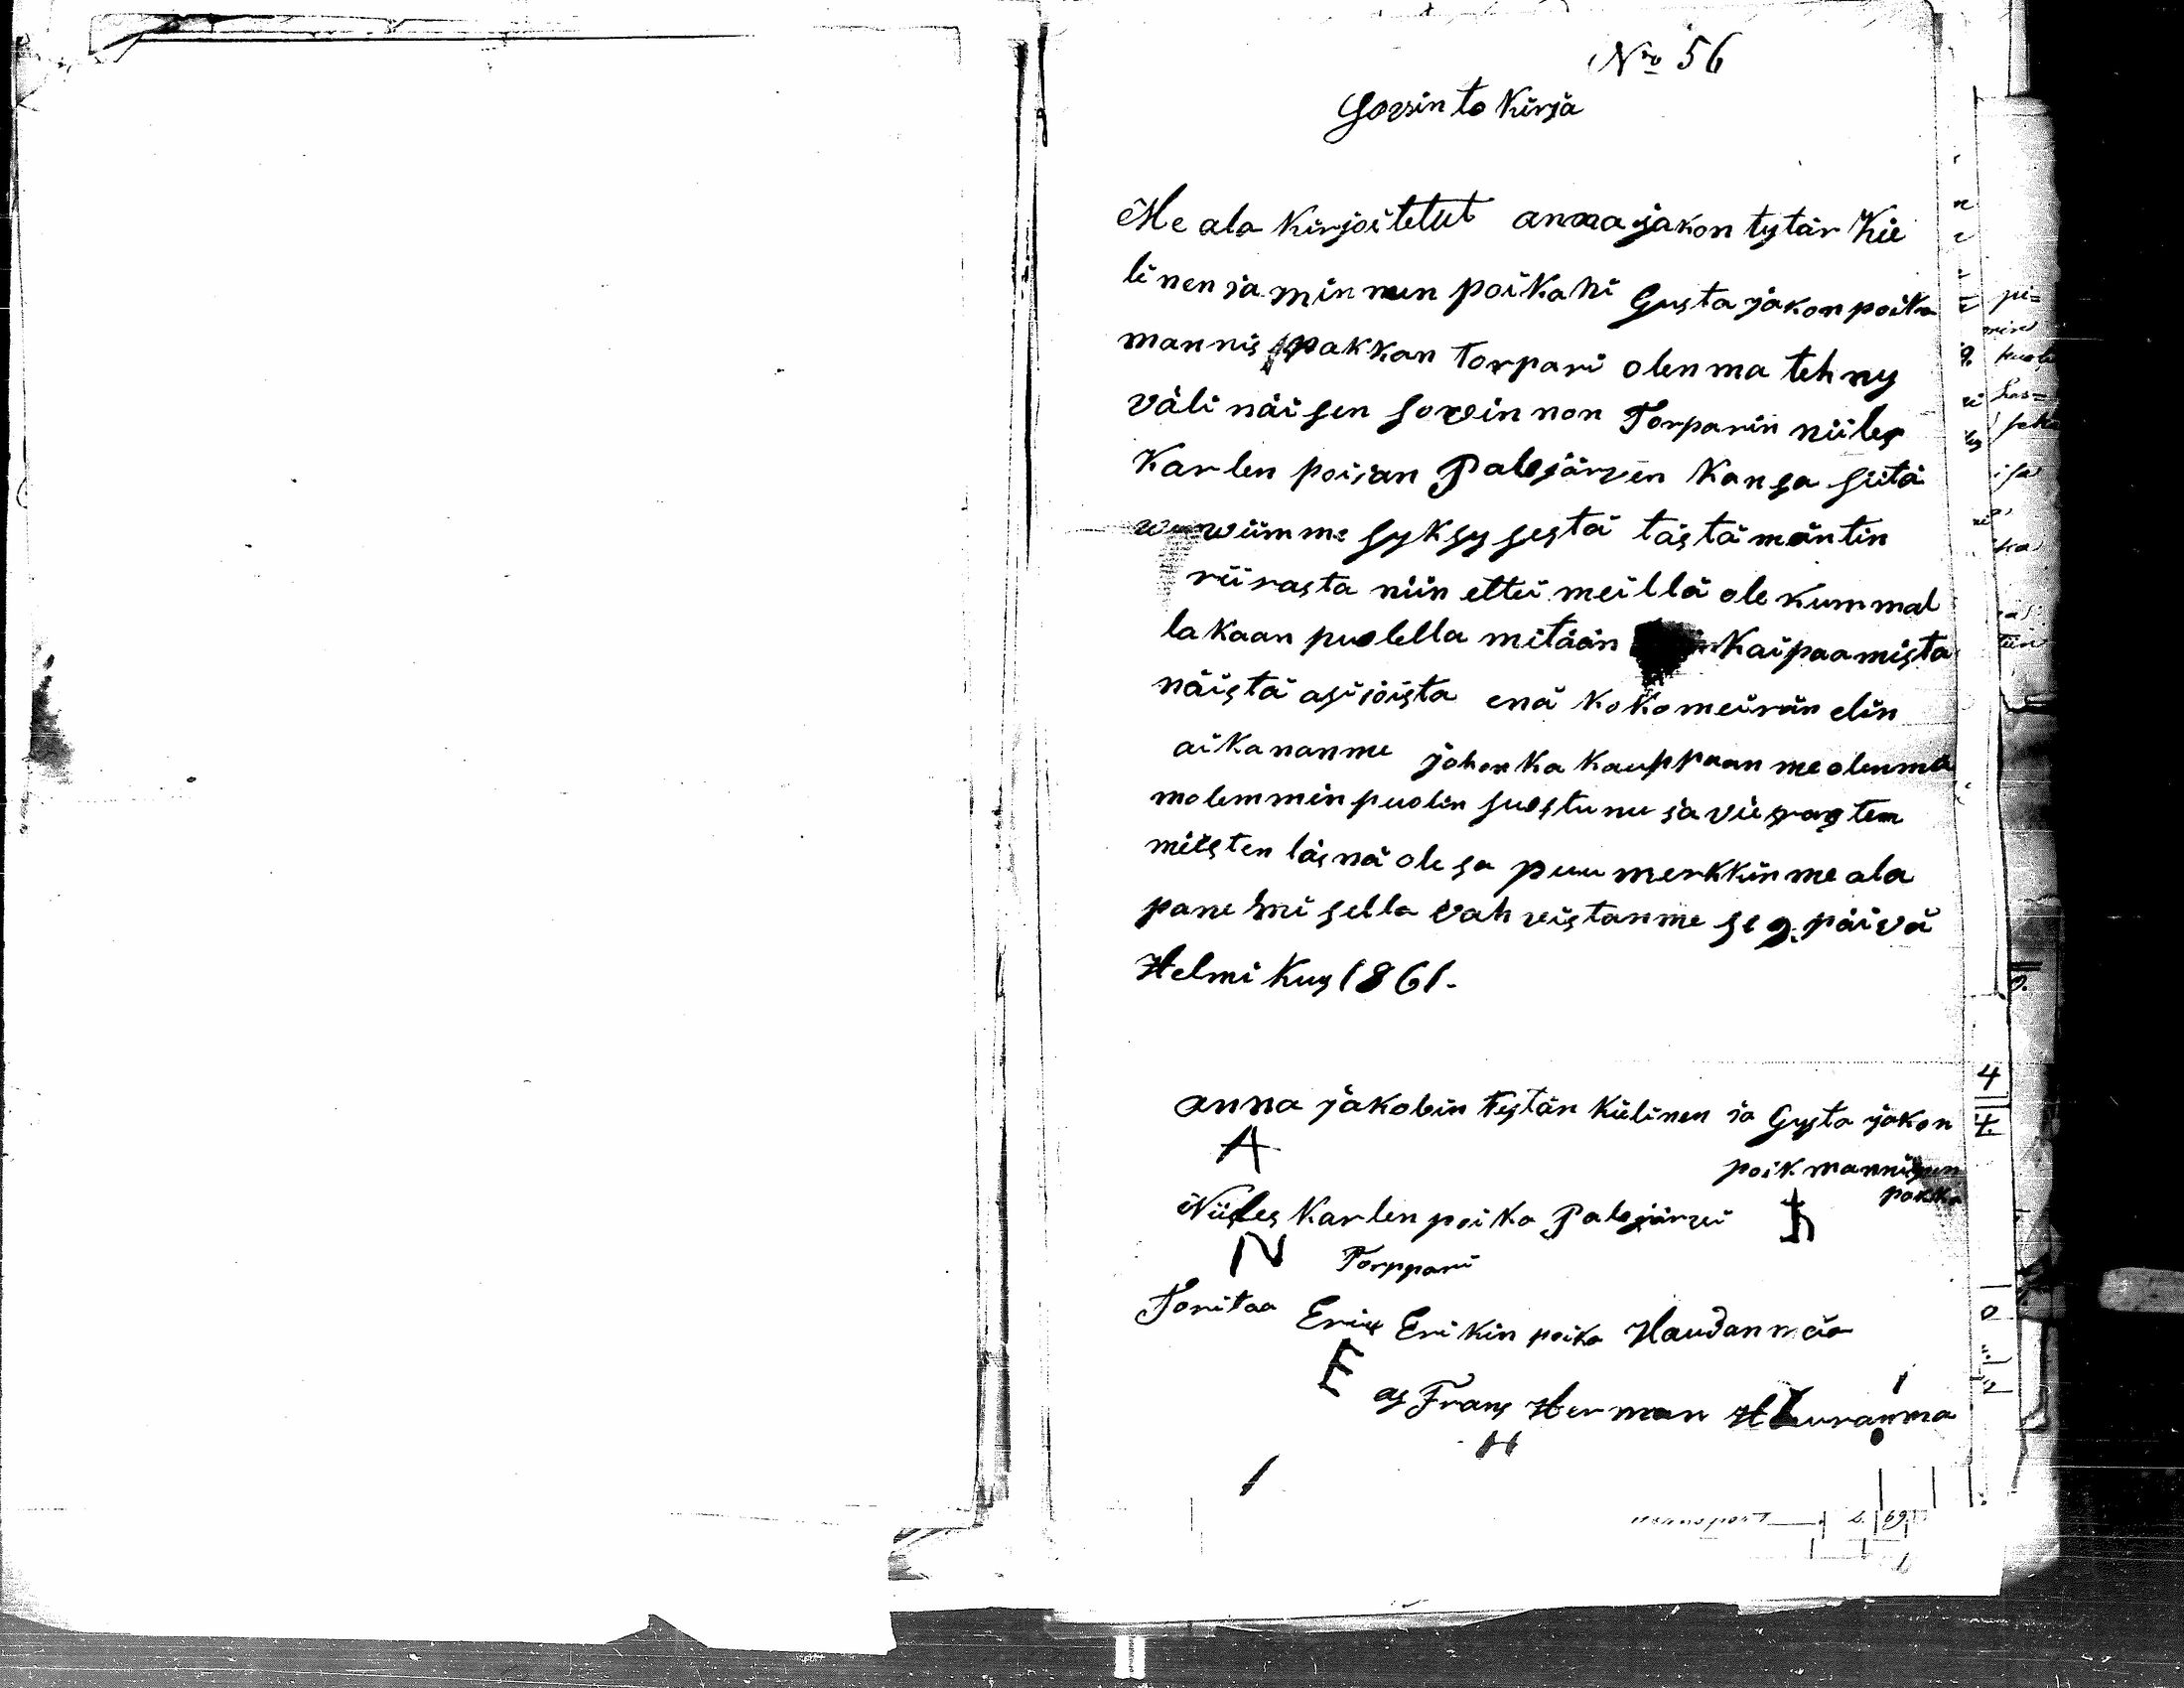 No 56
Sovinto Kirja
Me ala Kirjoitetut anna jakon tytär Kie
linen ja minnun poikani Gusta jakon poika
mannis pakkan Torpari olenma tehny
väli näisen sovin non Torparin niiles
Karlen poijan Palojärven Kansa siitä
wiimme syksysestä tästä mäntin
riirasta niin ettei meillä ole kummal
la kaan puolella mitään Kaipaamista
näistä asijoista enä koko meirän elin
aikananme johonka kauppaan me olenma
molemmin puolin suostunu ja vierasten
miesten läsnä olesa puumerkkinme ala
pane misella vahvistanme se 9. päivä
Helmi Kus 1861.
anna jakobin tytär Kielinen ja Gusta jakon
A
poik mannisen
pakka
Niiles Karlen poika Palojärvi
N Torppari
Toritaa Erik Erikin poika Haudanmaa
E
as Frans Herman Hauranma
H
4
4.
0